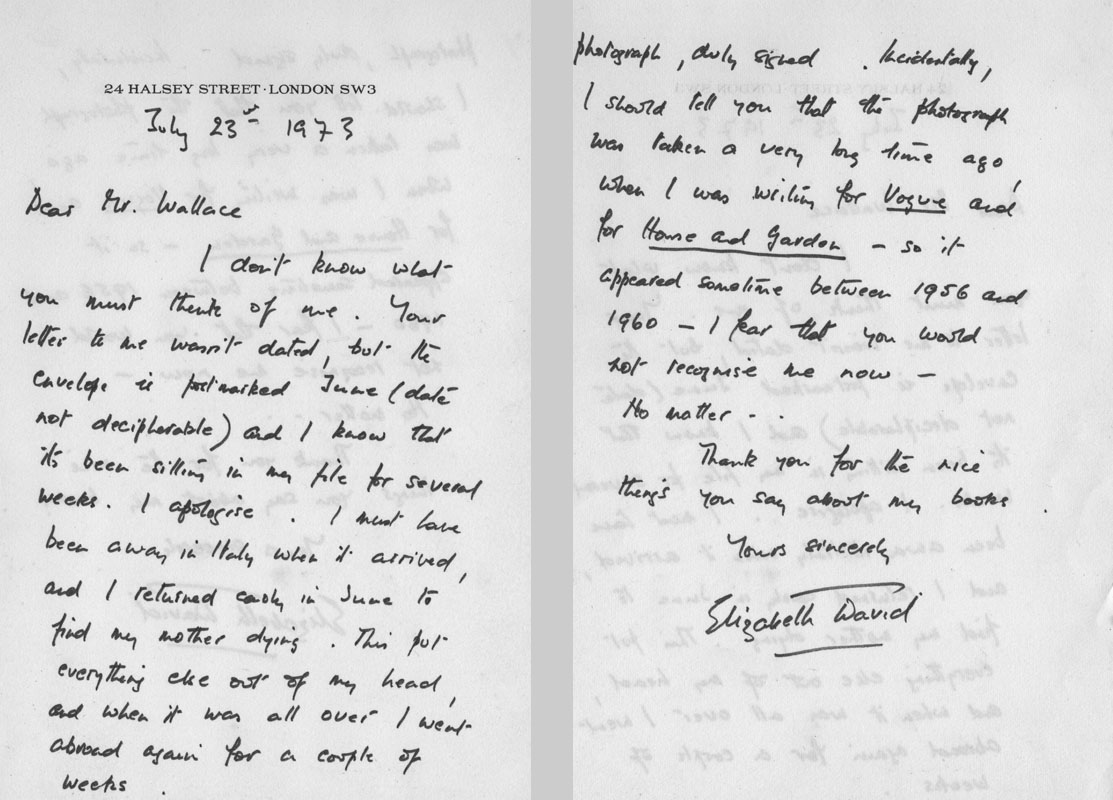 24 HALSEY STREET · LONDON SW3
July 23rd 1973
Dear Mr. Wallace
I don't know what
you must think of me. Your
letter to me wasn't dated, but the
envelope is postmarked June (date
not decipherable) and I know that
it's been sitting in my file for several
weeks. I apologise. I must have
been away in Italy when it arrived,
and I returned early in June to
find my mother dying. This put
everything else out of my head,
and when it was all over I went
abroad again for a couple of
weeks.
photograph, duly signed. Incidentally,
I should tell you that the photograph
was taken a very long time ago,
when I was writing for Vogue and
for House and Garden – so it
appeared sometime between 1956 and
1960 – I fear that you would
not recognise me now –
No matter . .
Thank you for the nice
things you say about my books.
Yours sincerely
Elizabeth David